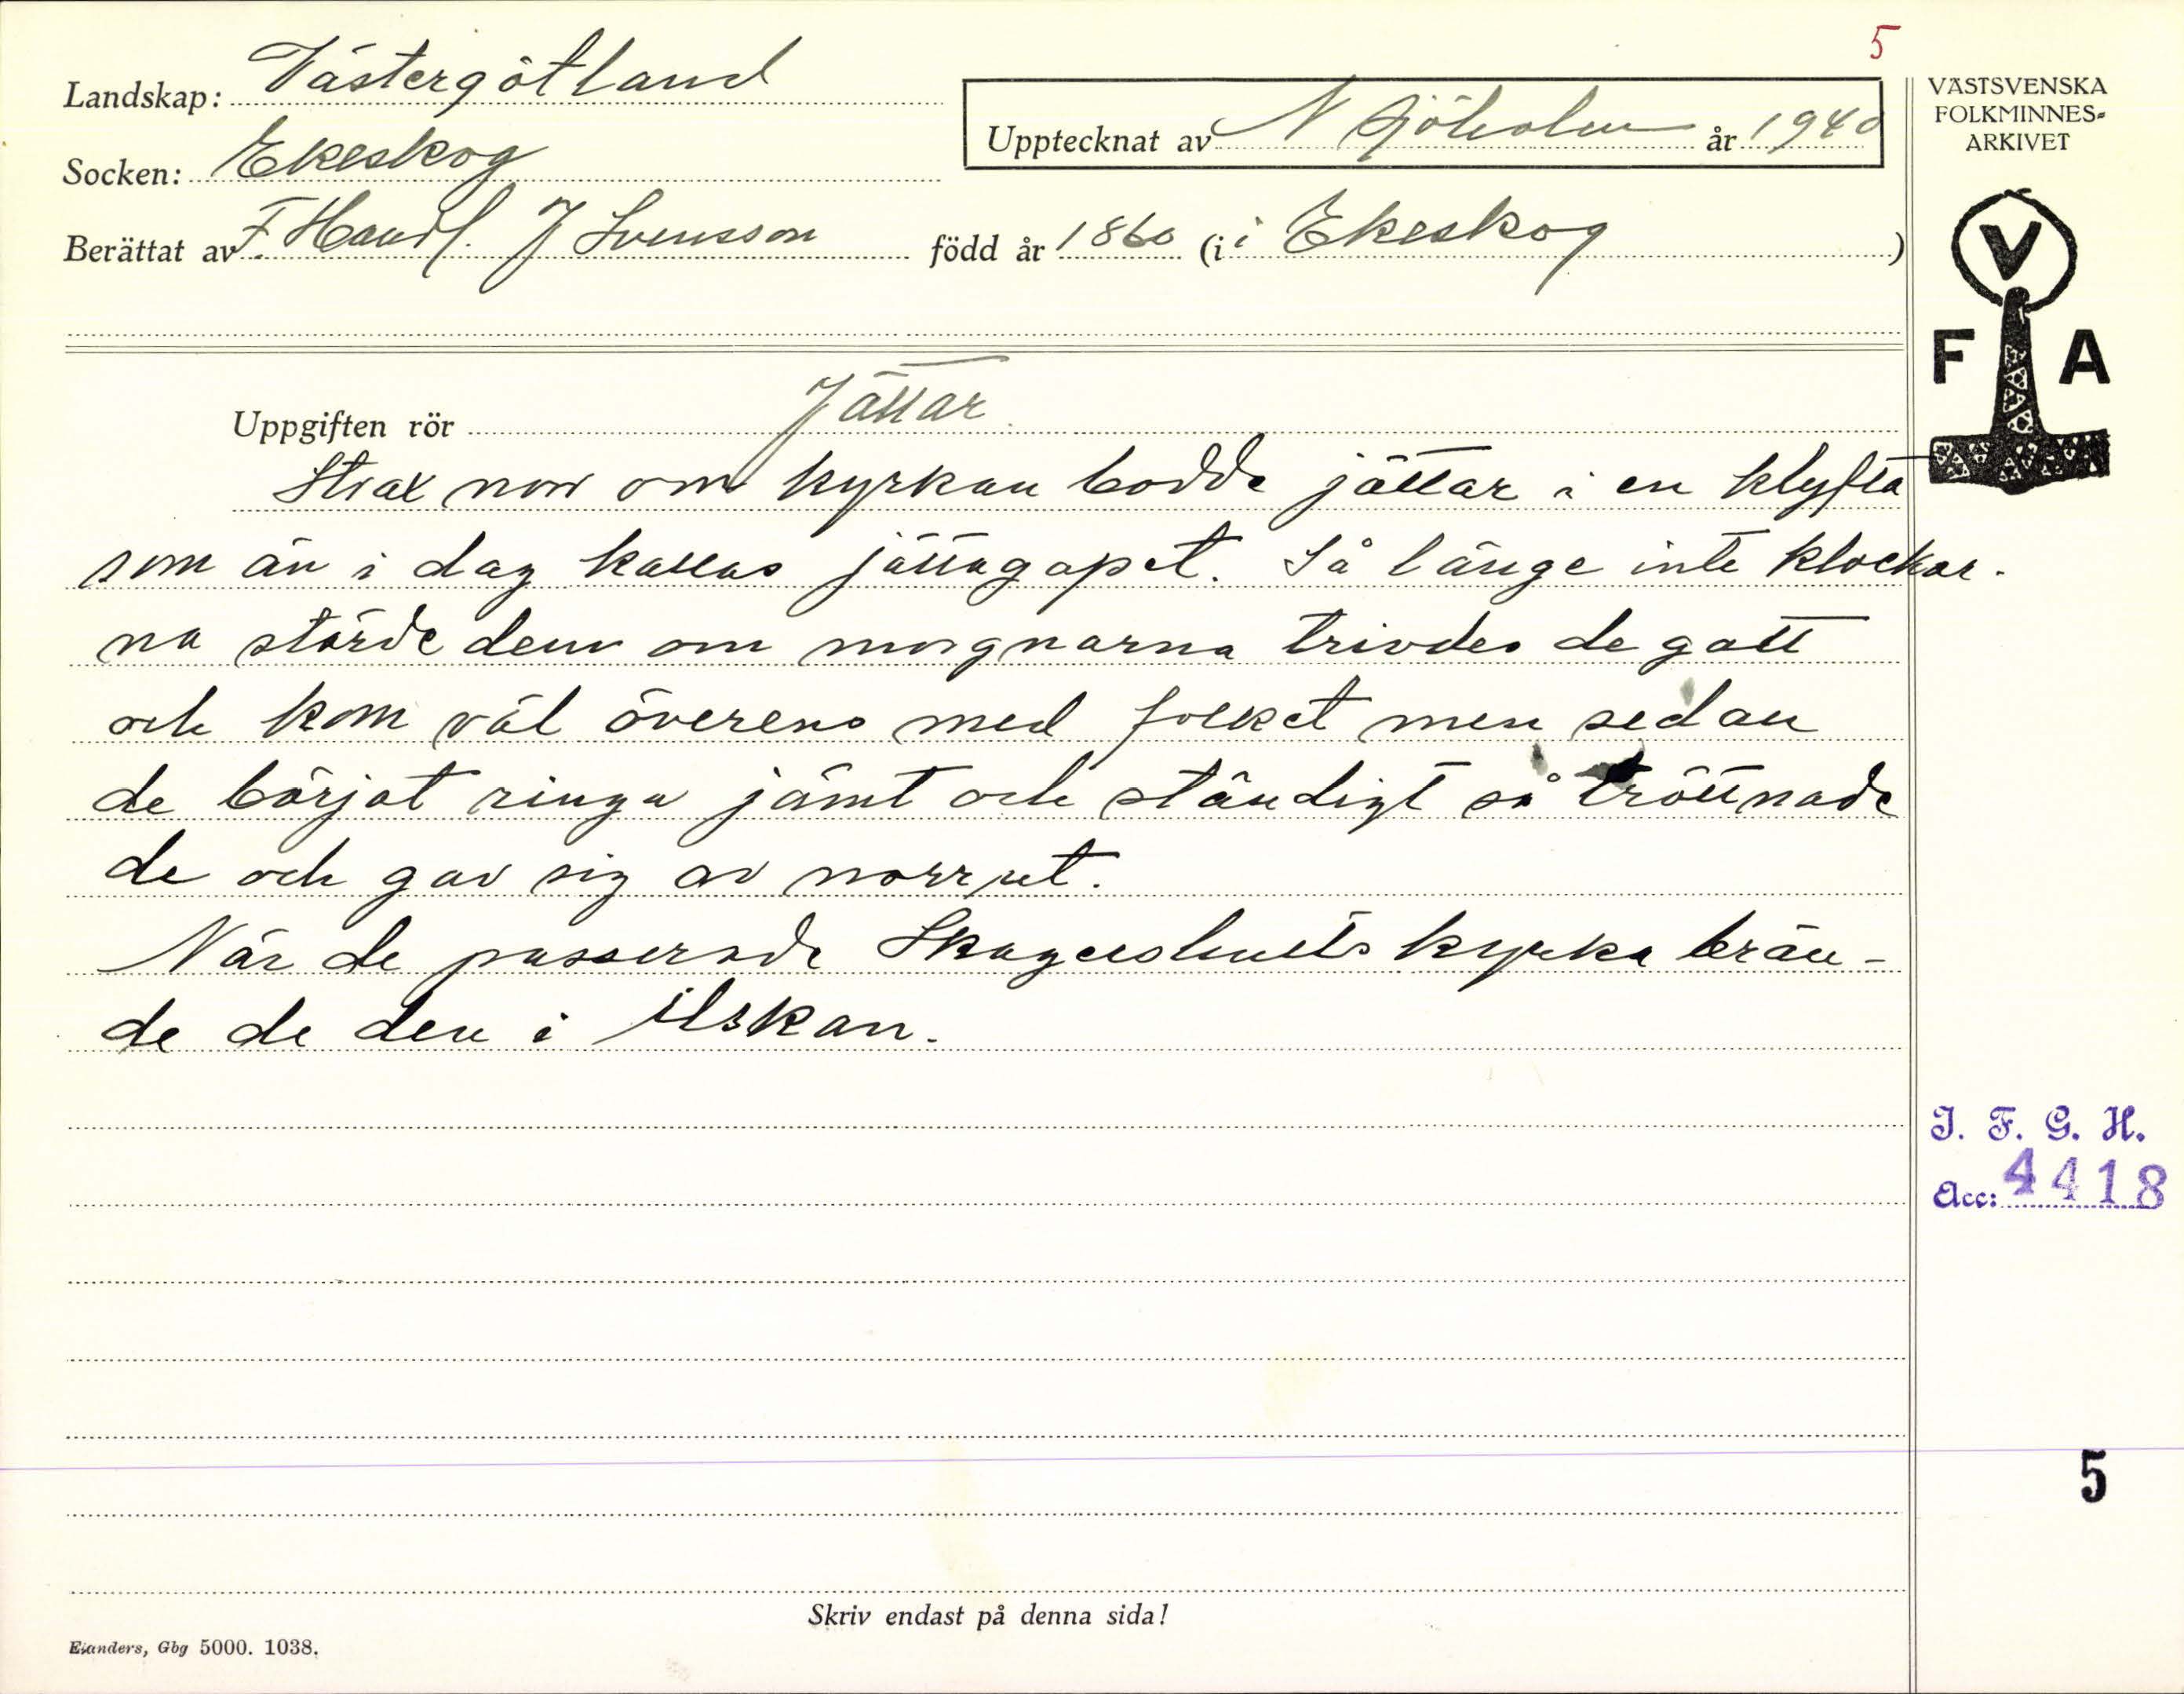 5
Landskap: Västergötland
Upptecknat av N Sjöholm år 1940
VÄSTSVENSKA
FOLKMINNES-
ARKIVET
Socken: Ekeskog
Berättat av F. Handl. J Svensson född år 1860 (i i Ekeskog )
V
F A
Uppgiften rör Jättar
Strax norr om kyrkan bodde jättar i en klyfta
som än i dag kallas jättagapet. Så länge inte klockar-
na störde dem om morgnarna trivdes de gott
och kom väl överens med folket men sedan
de börjat ringa jämt och ständigt så tröttnade
de och gav sig av norrut.
När de passerade Skagershults kyrka brän-
de de den i ilskan.
I. F. G. H.
Acc: 4418
5
Skriv endast på denna sida!
Elanders, Gbg 5000. 1038.